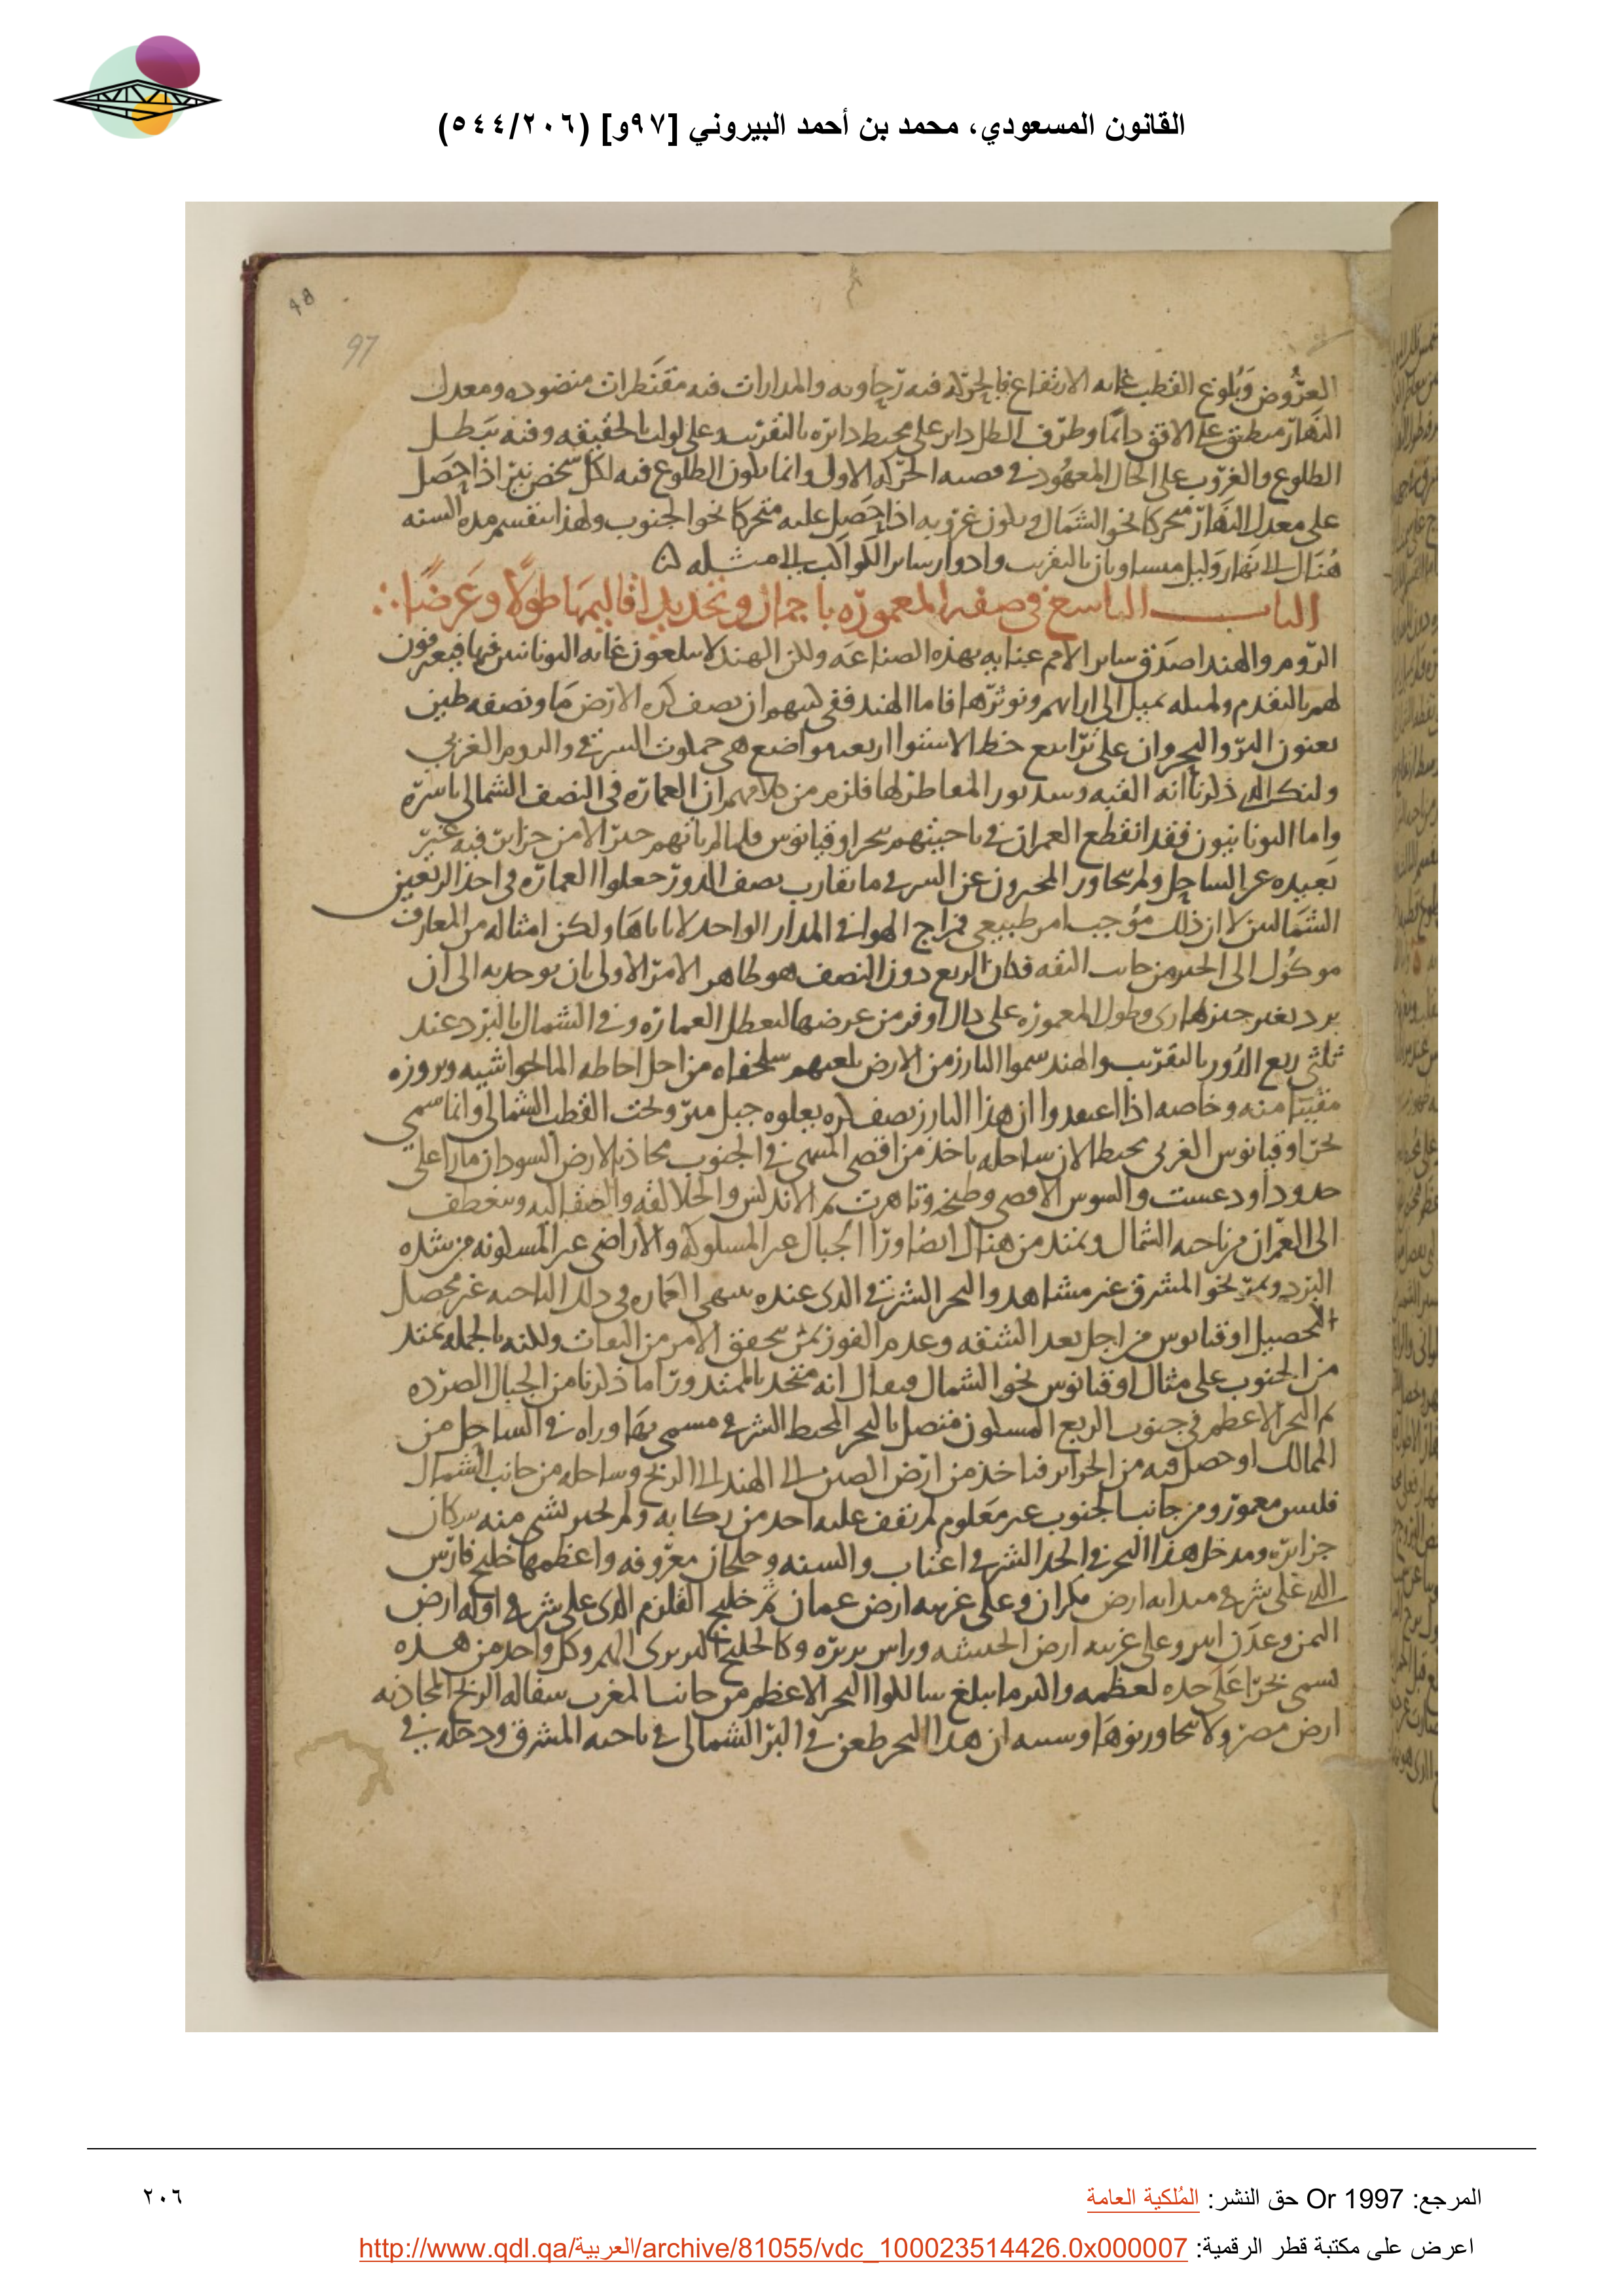 القانون المسعودي، محمد بن أحمد البيروني [٩٧و] (٥٤٤/٢٠٦)
48
97
العُروض وبُلوغ القطب غايه الارتفاع فالحركه فيه رحاويه والمدارات فيه مقنطرات منضوده ومعدل
النهار منطبق على الافق دائما وطرف الظل دائر على محيط دائره بالتقريب وعلى لولب بالحقيقه وفيه يبطل
الطلوع والغروب على الحال المعهود في قضيه الحركه الاولى وانما يكون الطلوع فيه لكل شخص نير اذا حصل
على معدل النهار متحركا نحو الشمال ويكون غروبه اذا حصل عليه متحركا نحو الجنوب ولهذا ينقسم مده السنه
هناك الى نهار وليل متساويان بالتقريب وادوار سائر الكواكب الى مثله
الباب التاسع في صفه المعموره باجمال وتحديد اقاليمها طولا وعرضا
الروم والهند اصدق سائر الامم عنايه بهذه الصناعه ولكن الهند لا يبلغون غايه اليونانيين فيها فيعترفون
لهم بالتقدم ولمثله نميل الى ارائهم ونوثرها فاما الهند ففي كتبهم ان نصف كره الارض ما ونصفه طين
يعنون البر والبحر وان على ترابيع خط الاستوا اربعه مواضع هي جملوث الشرقي والروم الغربي
ولنك الذي ذكرنا انه القبه وسدبور المقاطر لها فلزم من كلامهم ان العماره في النصف الشمالي باسره
واما اليونانيون فقد انقطع العمران في ناحيتهم ببحر اوقيانوس فلما لم ياتهم خبر الا من جزائر فيه غير
بعيده عن الساحل ولم يتجاور المخبرون عن الشرق ما يقارب نصف الدور جعلوا العماره في احد الربعين
الشماليين لا ان ذلك موجب امر طبيعي فمزاج الهوا في المدار الواحد لا ياباها ولكن امثاله من المعارف
موكول الى الخبر من جانب الثقه فكان الربع دون النصف هو ظاهر الامر الاولى بان يوخذ به الى ان
يرد لغيره خبر طارى وطول المعموره على ذلك اوفر من عرضها لتعطل العماره وفي الشمال بالبرد عند
ثلثي ربع الدور بالتقريب والهند سموا البارز من الارض بلغتهم سلحفاه من اجل احاطه الما بحواشيه وبروزه
مقببا منه وخاصه اذا اعتقدوا ان هذا البارز نصف كره يعلوه جبل ميرو تحت القطب الشمالي وانما سمي
بحر اوقيانوس الغربي محيطا لان ساحله ياخذ من اقصى المنتهى في الجنوب محاذيا لارض السودان مارا على
حدود اودغست والسوس الاقصى وطنجه وتاهرت ثم الاندلس والجلالقه والصقالبه وينعطف
الى العمران من ناحيه الشمال ويمتد من هناك ايضا ورا الجبال غير المسلوكه والاراضي غير المسكونه من شده
البرد ويمر نحو المشرق غير مشاهد والبحر الشرقي الذي عنده منتهى العماره في ذلك الناحيه غير محصل
تحصيل اوقيانوس من اجل بعد الشقه وعدم الفوز بمن يحقق الامر من الثقات ولكنه بالجمله يمتد
من الجنوب على مثال اوقيانوس نحو الشمال فيقال انه متحد بالممتد ورا ما ذكرنا من الجبال الصرده
ثم البحر الاعظم في جنوب الربع المسكون متصل بالبحر المحيط الشرقي مسمى بما وراه في الساحل من
الممالك او حصل فيه من الجزائر فياخذ من ارض الصين الى الهند الى الزنج وساحله من جانب الشمال
فليس معمور ومن جانب الجنوب غير معلوم لم يقف عليه احد من ركابه ولم يخبر بشي منه سكان
جزائره ومدخل هذا البحر في الحد الشرقي اعباب والسنه وخلجان معروفه واعظمها خليج فارس
الذي على شرقي مبدايه ارض مكران وعلى غربيه ارض عمان ثم خليج القلزم الذي على شرقي اوله ارض
اليمن وعدن ابين وعلى غربيه ارض الحبشه وراس بربره وكالخليج البربري الهم وكل واحد من هذه
يسمى بحرا على حده لعظمه واكثر ما يبلغ سالكوا البحر الاعظم من جانب المغرب سفاله الزنج المحاذيه
ارض مصر ولا يتجاورونها وسببه ان هذا البحر طعن في البر الشمالي في ناحيه المشرق ودخله في
المرجع: Or 1997 حق النشر: المُلكية العامة
٢٠٦
اعرض على مكتبة قطر الرقمية: http://www.qdl.qa/العربية/archive/81055/vdc_100023514426.0x000007